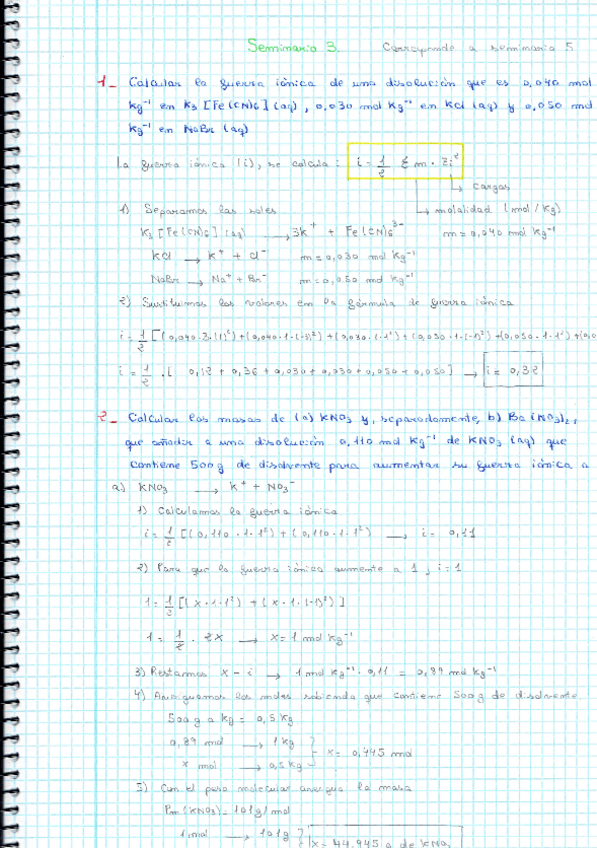 Seminario 3. Corresponde a seminario 5
1_ Calcular la fuerza iónica de una disolución que es 0,040 mol
kg⁻¹ en K₃[Fe(CN)₆](aq), 0,030 mol kg⁻¹ en KCl (aq) y 0,050 mol
kg⁻¹ en NaBr (aq)
La fuerza iónica (i), se calcula: i = 1/2 Σ m · Zi²
→ cargas
1) Separamos las sales → molalidad (mol/Kg)
K₃[Fe(CN)₆](aq) → 3K⁺ + Fe(CN)₆³⁻ m = 0,040 mol kg⁻¹
KCl → K⁺ + Cl⁻ m = 0,030 mol kg⁻¹
NaBr → Na⁺ + Br⁻ m = 0,050 mol kg⁻¹
2) Sustituimos los valores en la fórmula de fuerza iónica
i = 1/2 [(0,040·3·(1)²) + (0,040·1·(-3)²) + (0,030·1·1²) + (0,030·1·(-1)²) + (0,050·1·1²) + (0,0
i = 1/2 · [ 0,12 + 0,36 + 0,030 + 0,030 + 0,050 + 0,050] → i = 0,32
2_ Calcular las masas de (a) KNO₃ y, separadamente, b) Ba(NO₃)₂,
que añadir a una disolución 0,110 mol kg⁻¹ de KNO₃ (aq) que
contiene 500g de disolvente para aumentar su fuerza iónica a
a) KNO₃ → K⁺ + NO₃⁻
1) Calculamos la fuerza iónica
i = 1/2 [(0,110·1·1²) + (0,110·1·1²) → i = 0,11
2) Para que la fuerza iónica aumente a 1; i = 1
1 = 1/2 [(x·1·1²) + (x·1·(-1)²)]
1 = 1/2 · 2x → x = 1 mol kg⁻¹
3) Restamos x - i → 1 mol kg⁻¹ · 0,11 = 0,89 mol kg⁻¹
4) Averiguamos los moles sabiendo que contiene 500g de disolvente
500 g a kg = 0,5 Kg
0,89 mol → 1 kg
x mol → 0,5 kg } x = 0,445 mol
5) Con el peso molecular averiguo la masa
Pm (KNO₃) = 101g/mol
1 mol → 101g
x = 44,945 g de KNO₃